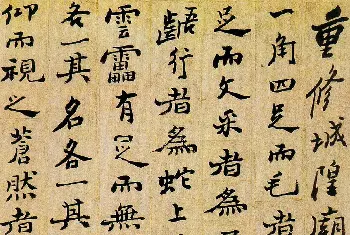 重修城隍廟
一角四足而毛者
足而文采者為
齬行者為蛇上
雲靁有足而無
各一其名各一其
仰而視之蒼然者